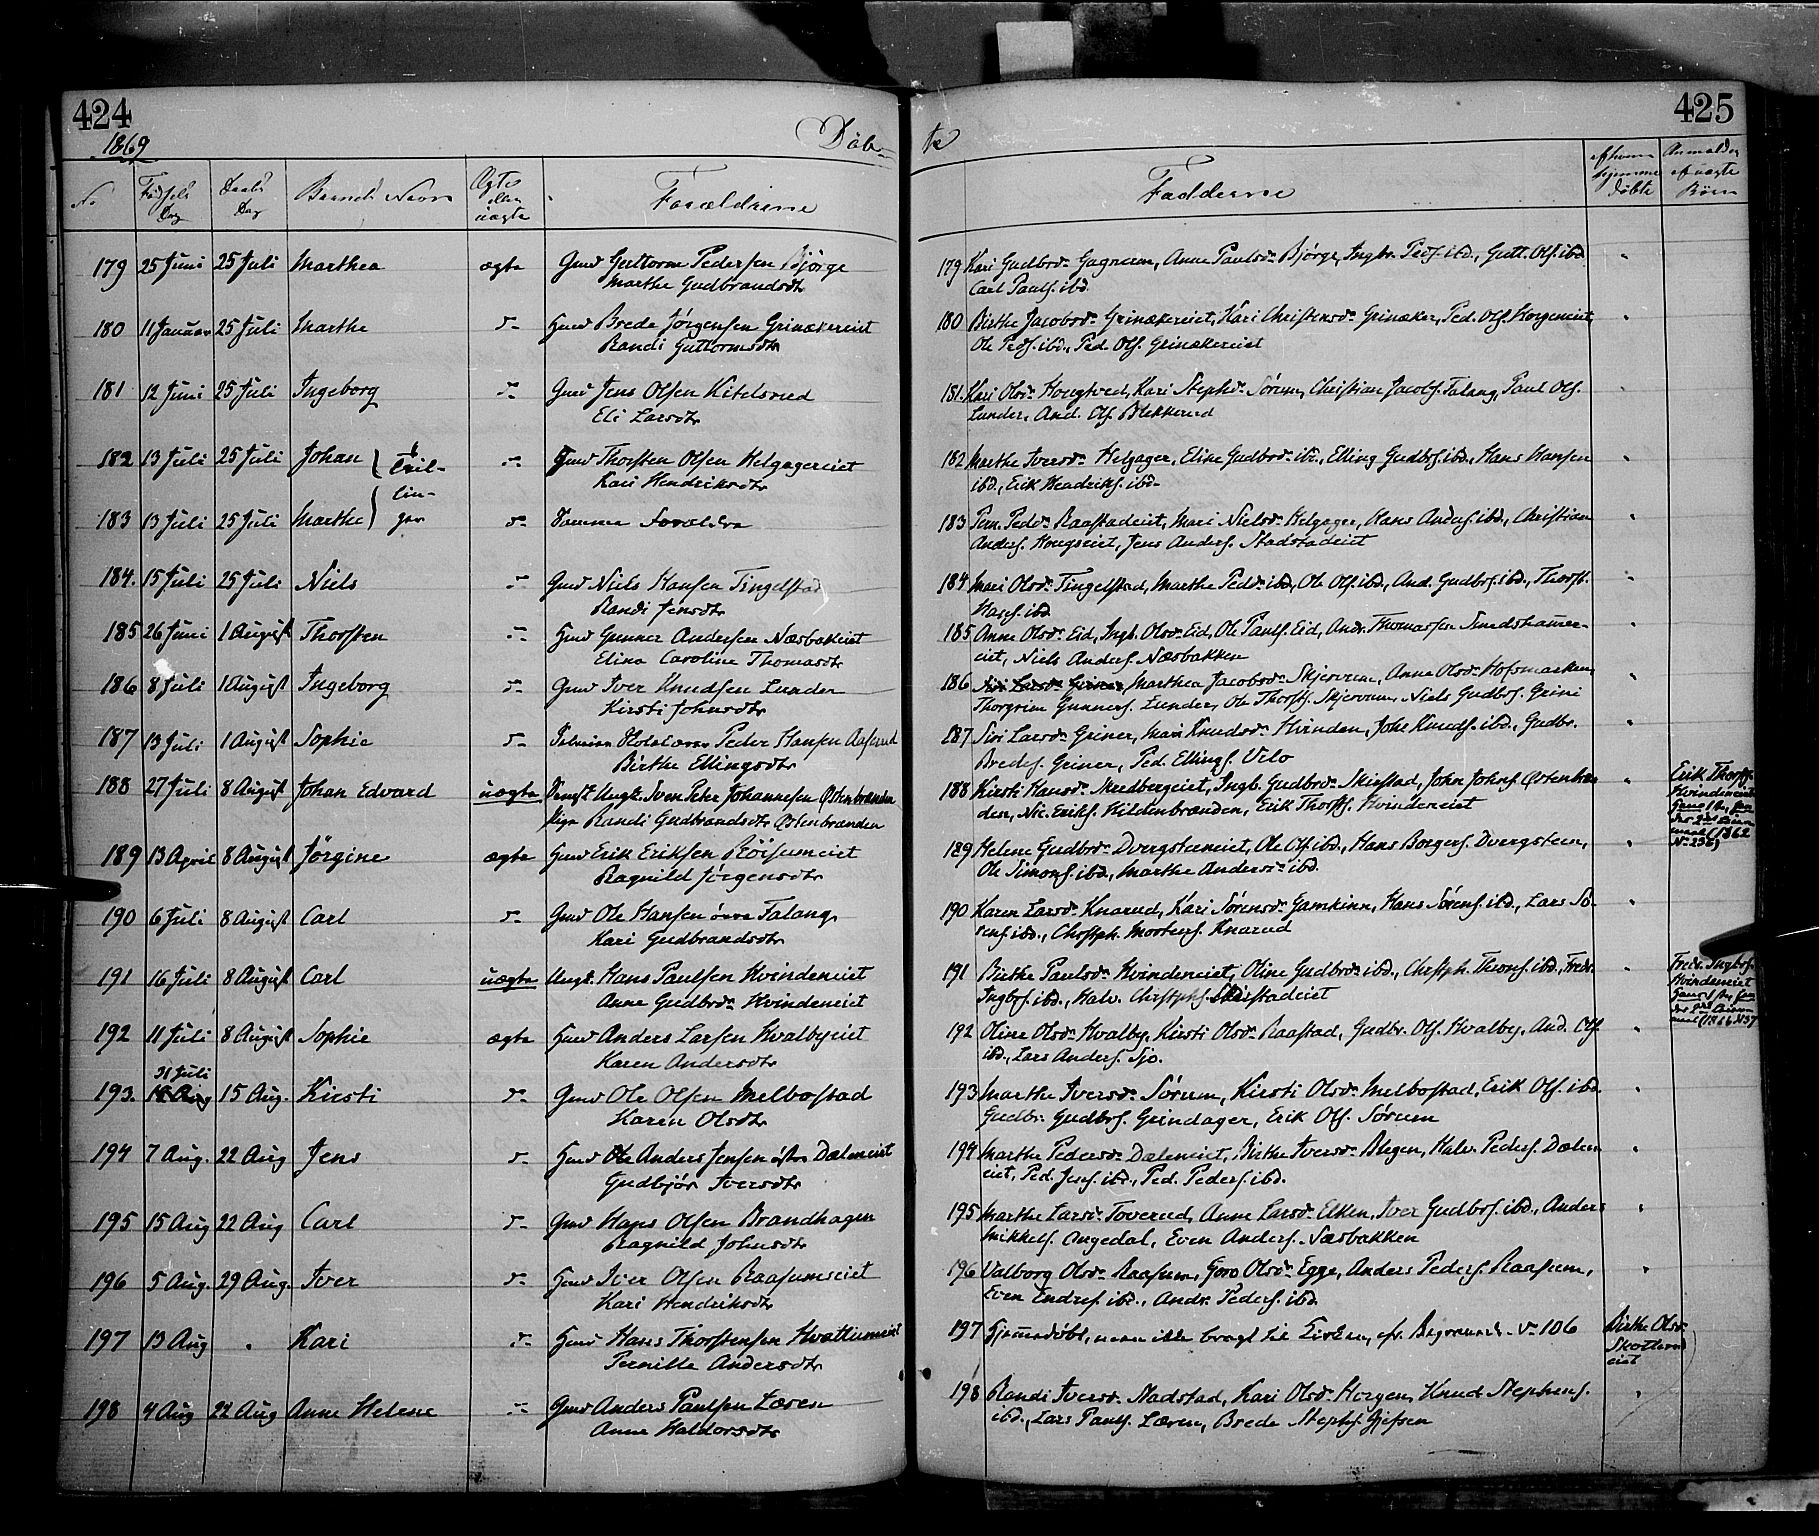 424
1869
Døb-
No
Fødsels Dag
Daabs Dag
Barnets Navn
Ægte eller uægte
Forældrene
179 25 Juni 25 Juli Marthea ægte Gmd Guttorm Pedersen Bjørge
Marthe Gudbrandsdtr
180 11 Januar 25 Juli Marthe Hmd Brede Jørgensen Grinakereiet
Randi Guttormsdtr
181 12 Juni 25 Juli Ingeborg Gmd Jens Olsen Kitelsrud
Eli Larsdtr
182 13 Juli 25 Juli Johan } Tvil- Hmd Thorsten Olsen Helgagereiet
Kari Hendriksdtr
lin-
183 13 Juli 25 Juli Marthe } ger Samme Forældre
184. 15 Juli 25 Juli Niels Gmd Niels Hansen Tingelstad
Randi Jensdtr
185 26 Juni 1 August Thorsten Hmd Gunner Andersen Næsbakeiet
Elina Caroline Thomasdtr
186 8 Juli 1 August Ingeborg Gmd Iver Knudsen Lunder
Kirsti Johnsdtr
187 13 Juli 1 August Sophie Peder Hansen Aaserud
Birthe Ellingsdtr
188 27 Juli 8 August Johan Edvard uægte Ungk. Sven Peter Johannesen Østenbrænden
Pige Randi Gudbrandsdtr Østenbrænden
189 13 April 8 August Jørgine ægte Hmd Erik Eriksen Røisumeiet
Ragnild Jørgensdtr
190 6 Juli 8 August Carl Gmd Ole Hansen øvre Falang
Kari Gudbrandsdtr
191 16 Juli 8 August Carl uægte Ungk. Hans Paulsen Hvindeneiet
Anne Gudbrdr Hvindeneiet
192 11 Juli 8 August Sophie ægte Hmd Anders Larsen Hvalbyeiet
Karen Andersdtr
31 Juli
193. 15 Aug. Kirsti Gmd Ole Olsen Melbostad
Karen Olsdtr
194 7 Aug. 22 Aug Jens Hmd Ole Anders Jensen østre Dæleneiet
Gudbjør Iversdtr
195 15 Aug 22 Aug Carl Gmd Hans Olsen Brandhagen
Ragnild Johnsdtr
196 5 Aug. 29 Aug. Iver Hmd Iver Olsen Raasumseiet
Kari Hendriksdtr
197 13 Aug Kari Hmd Hans Thorstensen Hvattumeiet
Pernille Andersdtr
198 4 Aug 22 Aug Anne Helene Gmd Anders Paulsen Læren
Anne Haldorsdtr
425
te
Fadderne
af hvem hjemme døbte
Anmælder af uægte Børn
179 Kari Gudbrdr Gagnum, Anne Paulsdr Bjørge, Ingbr. Peds. ibd., Gutt. Ols. ibd.
Carl Pauls. ibd.
180 Birthe Jacobsdr Grinakereiet, Kari Christensdr Grinaker, Ped. Ols. Horgeneiet,
Ole Peds. ibd., Ped. Ols. Grinakereiet
181. Kari Olsdr Hougtved, Kari Stephdr Sørum, Christian Jacobs. Falang, Paul Ols.
Lunder, And. Ols. Blekkerud
182 Marthe Iversdr Helgager, Eline Gudbrdr ibd., Elling Gudbrs. ibd., Hans Hansen
ibd., Erik Hendriks. ibd.
183 Pern. Pedr. Raastadeiet, Mari Nielsdr Helgager, Hans Anders. ibd., Christian
Anders. Hougseiet, Jens Anders. Stadstadeiet
184 Mari Olsdr Tingelstad, Marthe Peddr ibd, Ole Ols. ibd., And. Gudbrs. ibd., Thorst.
Hans. ibd.
185 Anne Olsdr Eid, Ingb. Olsdr Eid, Ole Pauls. Eid, Andr. Thomassen Smedshamer-
eiet, Niels Anders. Næsbakken
186 Siri Larsdr Griner, Marthea Jacobsdr Skjervum, Anne Olsdr Hofsmarken,
Thorgrim Gunners. Lunder, Ole Thorsts. Skjervum, Niels Gudbrs. Grini
187 Siri Larsdr Griner, Mari Knudsdr Hvinden, John Knuds. ibd., Gudbr.
Bredes. Griner, Ped. Ellings. Velo
188 Kirsti Hansdr Skredbergeiet, Ingb. Gudbrdr Skiastad, John Johns. Østenbræn-
den, Nic. Eriks. Hildenbrænden, Erik Thorsts. Hvindeneiet
Erik Thorsts. Hvindeneiet
1862
189 Helene Gudbrdr Dvergsteneiet, Ole Ols. ibd., Hans Borgers. Dvergsteen,
Ole Simons. ibd., Marthe Andersdr ibd.
190 Karen Larsdr Knarud, Kari Sørensdr Gamkinn, Hans Sørens. ibd., Lars Sø-
rens. ibd., Christph. Mortens. Knarud
191 Birthe Paulsdr Hvindeneiet, Oline Gudbrdr ibd., Christph. Thoms. ibd., Fredr.
Ingbrs. ibd., Halv. Christphs. Skiastadeiet
Fredr. Ingbrs. Hvindeneiet
192 Oline Olsdr Hvalby, Kirsti Olsdr Raastad, Gudbr. Ols. Hvalby, And. Ols.
ibd., Lars Anders. Sjo.
193 Marthe Iversdr Sørum, Kirsti Olsdr Melbostad, Erik Ols. ibd.
Gudbr. Gudbrs. Grindager, Erik Ols. Sørum
194 Marthe Pedersdr Dæleneiet, Birthe Iversdr Blegen, Halv. Peders. Dælen-
eiet, Ped. Jens. ibd., Ped. Peders. ibd.
195 Marthe Larsdr Toverud, Anne Larsdr Elken, Iver Gudbrs. ibd., Anders
Mikkels. Angedal, Even Anders. Næsbakken
196 Valborg Olsdr Raasum, Goro Olsdr Egge, Anders Peders. Raasum,
Even Endres. ibd., Andr. Peders. ibd.
197 Hjemmedøbt, men ikke bragt til Kirken, cfr. Begravede No 106
Birthe Olsdr
Skotterud
eiet
198 Randi Iversdr Nadstad, Kari Olsdr Horgen, Knud Stephens.
ibd., Lars Pauls. Læren, Brede Stephs. Gjefsen